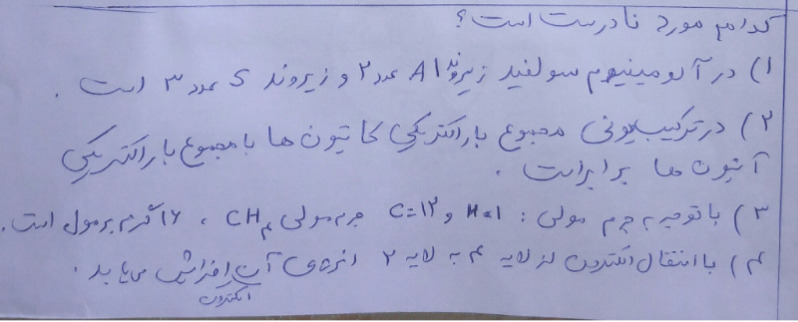 کدام مورد نادرست است؟
۱) در آلومینیوم سولفید زیروند Al عدد ۲ و زیروند S عدد ۳ است.
۲) در ترکیب یونی مجموع بار الکتریکی کاتیون ها با مجموع بار الکتریکی
آنیون ها برابر است.
۳) با توجه به جرم مولی: H=1 و C=۱۲ جرم مولی CH۴، ۱۶ گرم بر مول است.
۴) با انتقال الکترون از لایه ۴ به لایه ۲ انرژی آن افزایش می یابد.
الکترون